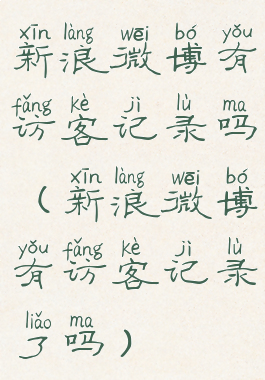 xīn làng wēi bó yǒu
新浪微博有
fǎng kè jì lù ma
访客记录吗
xīn làng wēi bó
（新浪微博
yǒu fǎng kè jì lù
有访客记录
liǎo ma
了吗）